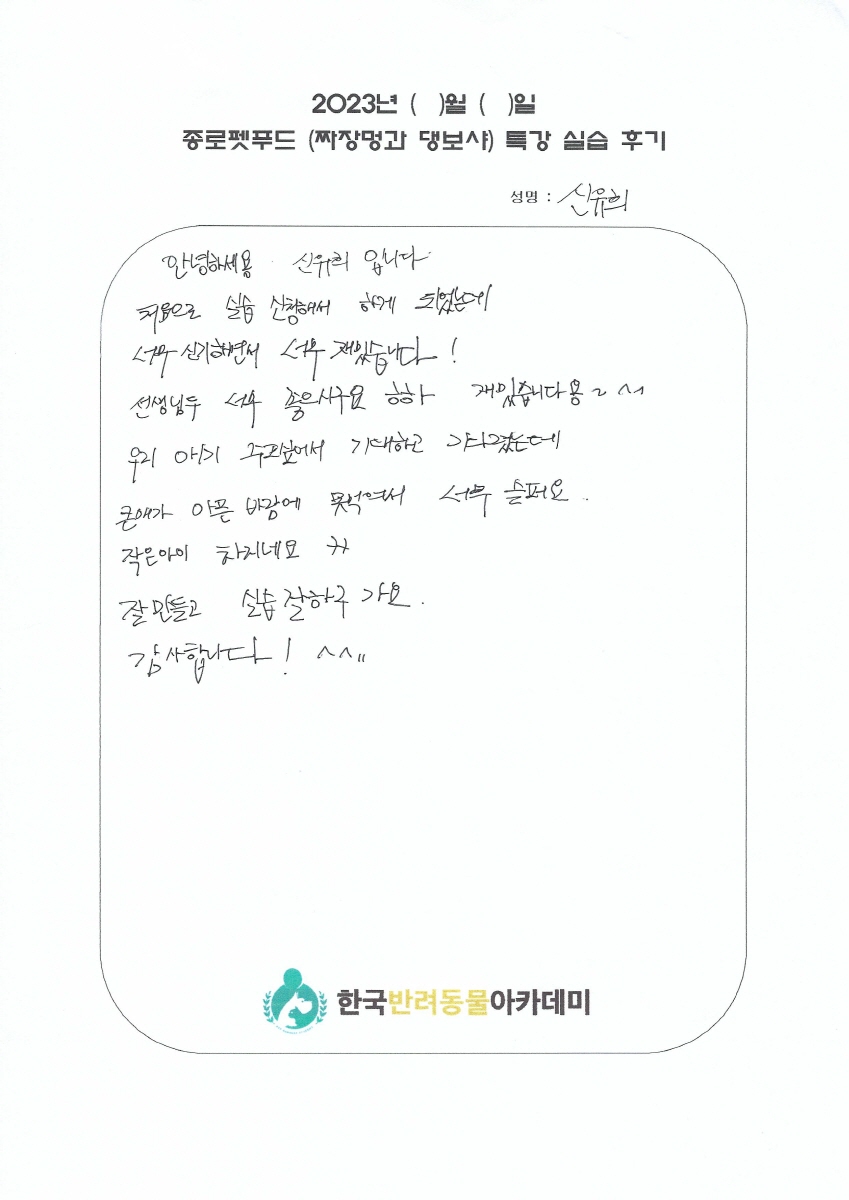 2023년 (  )월 (  )일
종로펫푸드 (짜장멍과 댕보샤) 특강 실습 후기
성명 : 신유희
안녕하세용 신유희 입니다
처음으로 실습 신청해서 하게 되었는데
너무 신기하면서 너무 재밌습니다 !
선생님두 너무 좋으시구요 하하 재밌습니다용~ ^^
우리 아기 기대하고 기다렸는데
큰애가 아픈 바람에 못먹여서 너무 슬퍼요.
작은아이 ㅠㅠ
잘 만들고 실습 잘하구 가요.
감사합니다! ^^"
한국반려동물아카데미